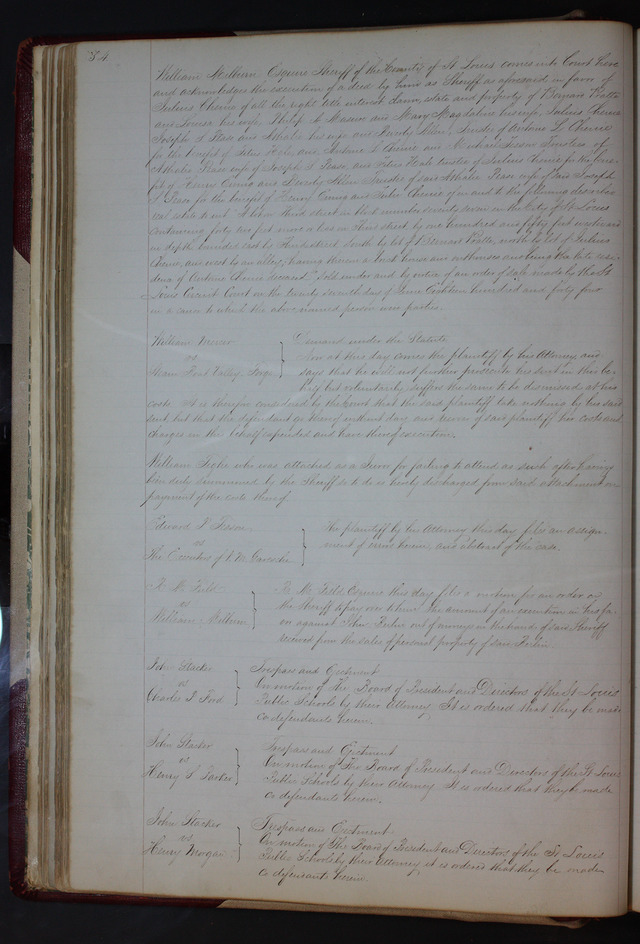 84
William Milburn Esquire Sheriff of the County of St Louis comes into Court here
and acknowledges the execution of a deed by him as Sheriff as aforesaid in favor of
Julius Chenie of all the right title interest claim, estate and property of Bernard Pratte
and Louisa his wife, Philip A and Mary Magdalene his wife, Julius Chenie
Joseph I Pease and Athalie his wife and Beverly Allen, Trustee of Antoine L Chenie
for the benefit of Peters Hale, and Antoine L Chenie and Michael Trustees of
Athalie Pease wife of Joseph I Pease, and Peters Hale trustee of Julius Chenie for the bene-
fit of Henry and Beverly Allen Trustee of said Athalie Pease wife of said Joseph
I Pease for the benefit of Henry and Julius Chenie of in and to the following described
real estate to wit A lot on third street in block number seventy seven in the City of St Louis
containing forty two feet more or less on Third street by one hundred and fifty feet westward
in depth bounded east by Third street south by lot of Bernard Pratte, north by lot of Julius
Chenie, and west by an alley, having thereon a brick house and outhouses and being the late resi-
dence of Antoine Chenie deceased Sold under and by virtue of an order of sale made by the St
Louis Circuit Court on the twenty seventh day of June Eighteen hundred and forty four
in a cause to which the above named persons were parties.
William
vs
Steam Boat Valley Forge
Demand under the Statute
Now at this day comes the plaintiff by his Attorney, and
says that he will not further prosecute his suit in this be-
half but voluntarily suffers the same to be dismissed at his
costs. It is therefore considered by the Court that the said plaintiff take nothing by his said
suit but that the defendant go thereof without day, and recover of said plaintiff his costs and
charges in this behalf expended and have thereof execution.
William who was attached as a Juror for failing to attend as such after having
been duly summoned by the Sheriff so to do is hereby discharged from said attachment on
payment of the costs thereof
Edward
vs
The Executors of
The plaintiff by his Attorney this day files an assign-
ment of errors herein, and abstract of the case.
R M Field
vs
William Milburn
R M Field Esquire this day files a motion for an order on
the Sheriff to pay over to him the amount of an execution in his fa-
vor against John out of moneys in the hands of said Sheriff
received from the sales of personal property of said
John Stacker
vs
Charles I Ford
Trespass and Ejectment
On motion of The Board of President and Directors of the St Louis
Public Schools by their Attorney It is ordered that they be made
co defendants herein.
John Stacker
vs
Henry I Parker
Trespass and Ejectment
On motion of The Board of President and Directors of the St Louis
Public Schools by their Attorney It is ordered that they be made
co defendants herein.
John Stacker
vs
Henry Morgan
Trespass and Ejectment
On motion of The Board of President and Directors of the St Louis
Public Schools by their Attorney it is ordered that they be made
co defendants herein.